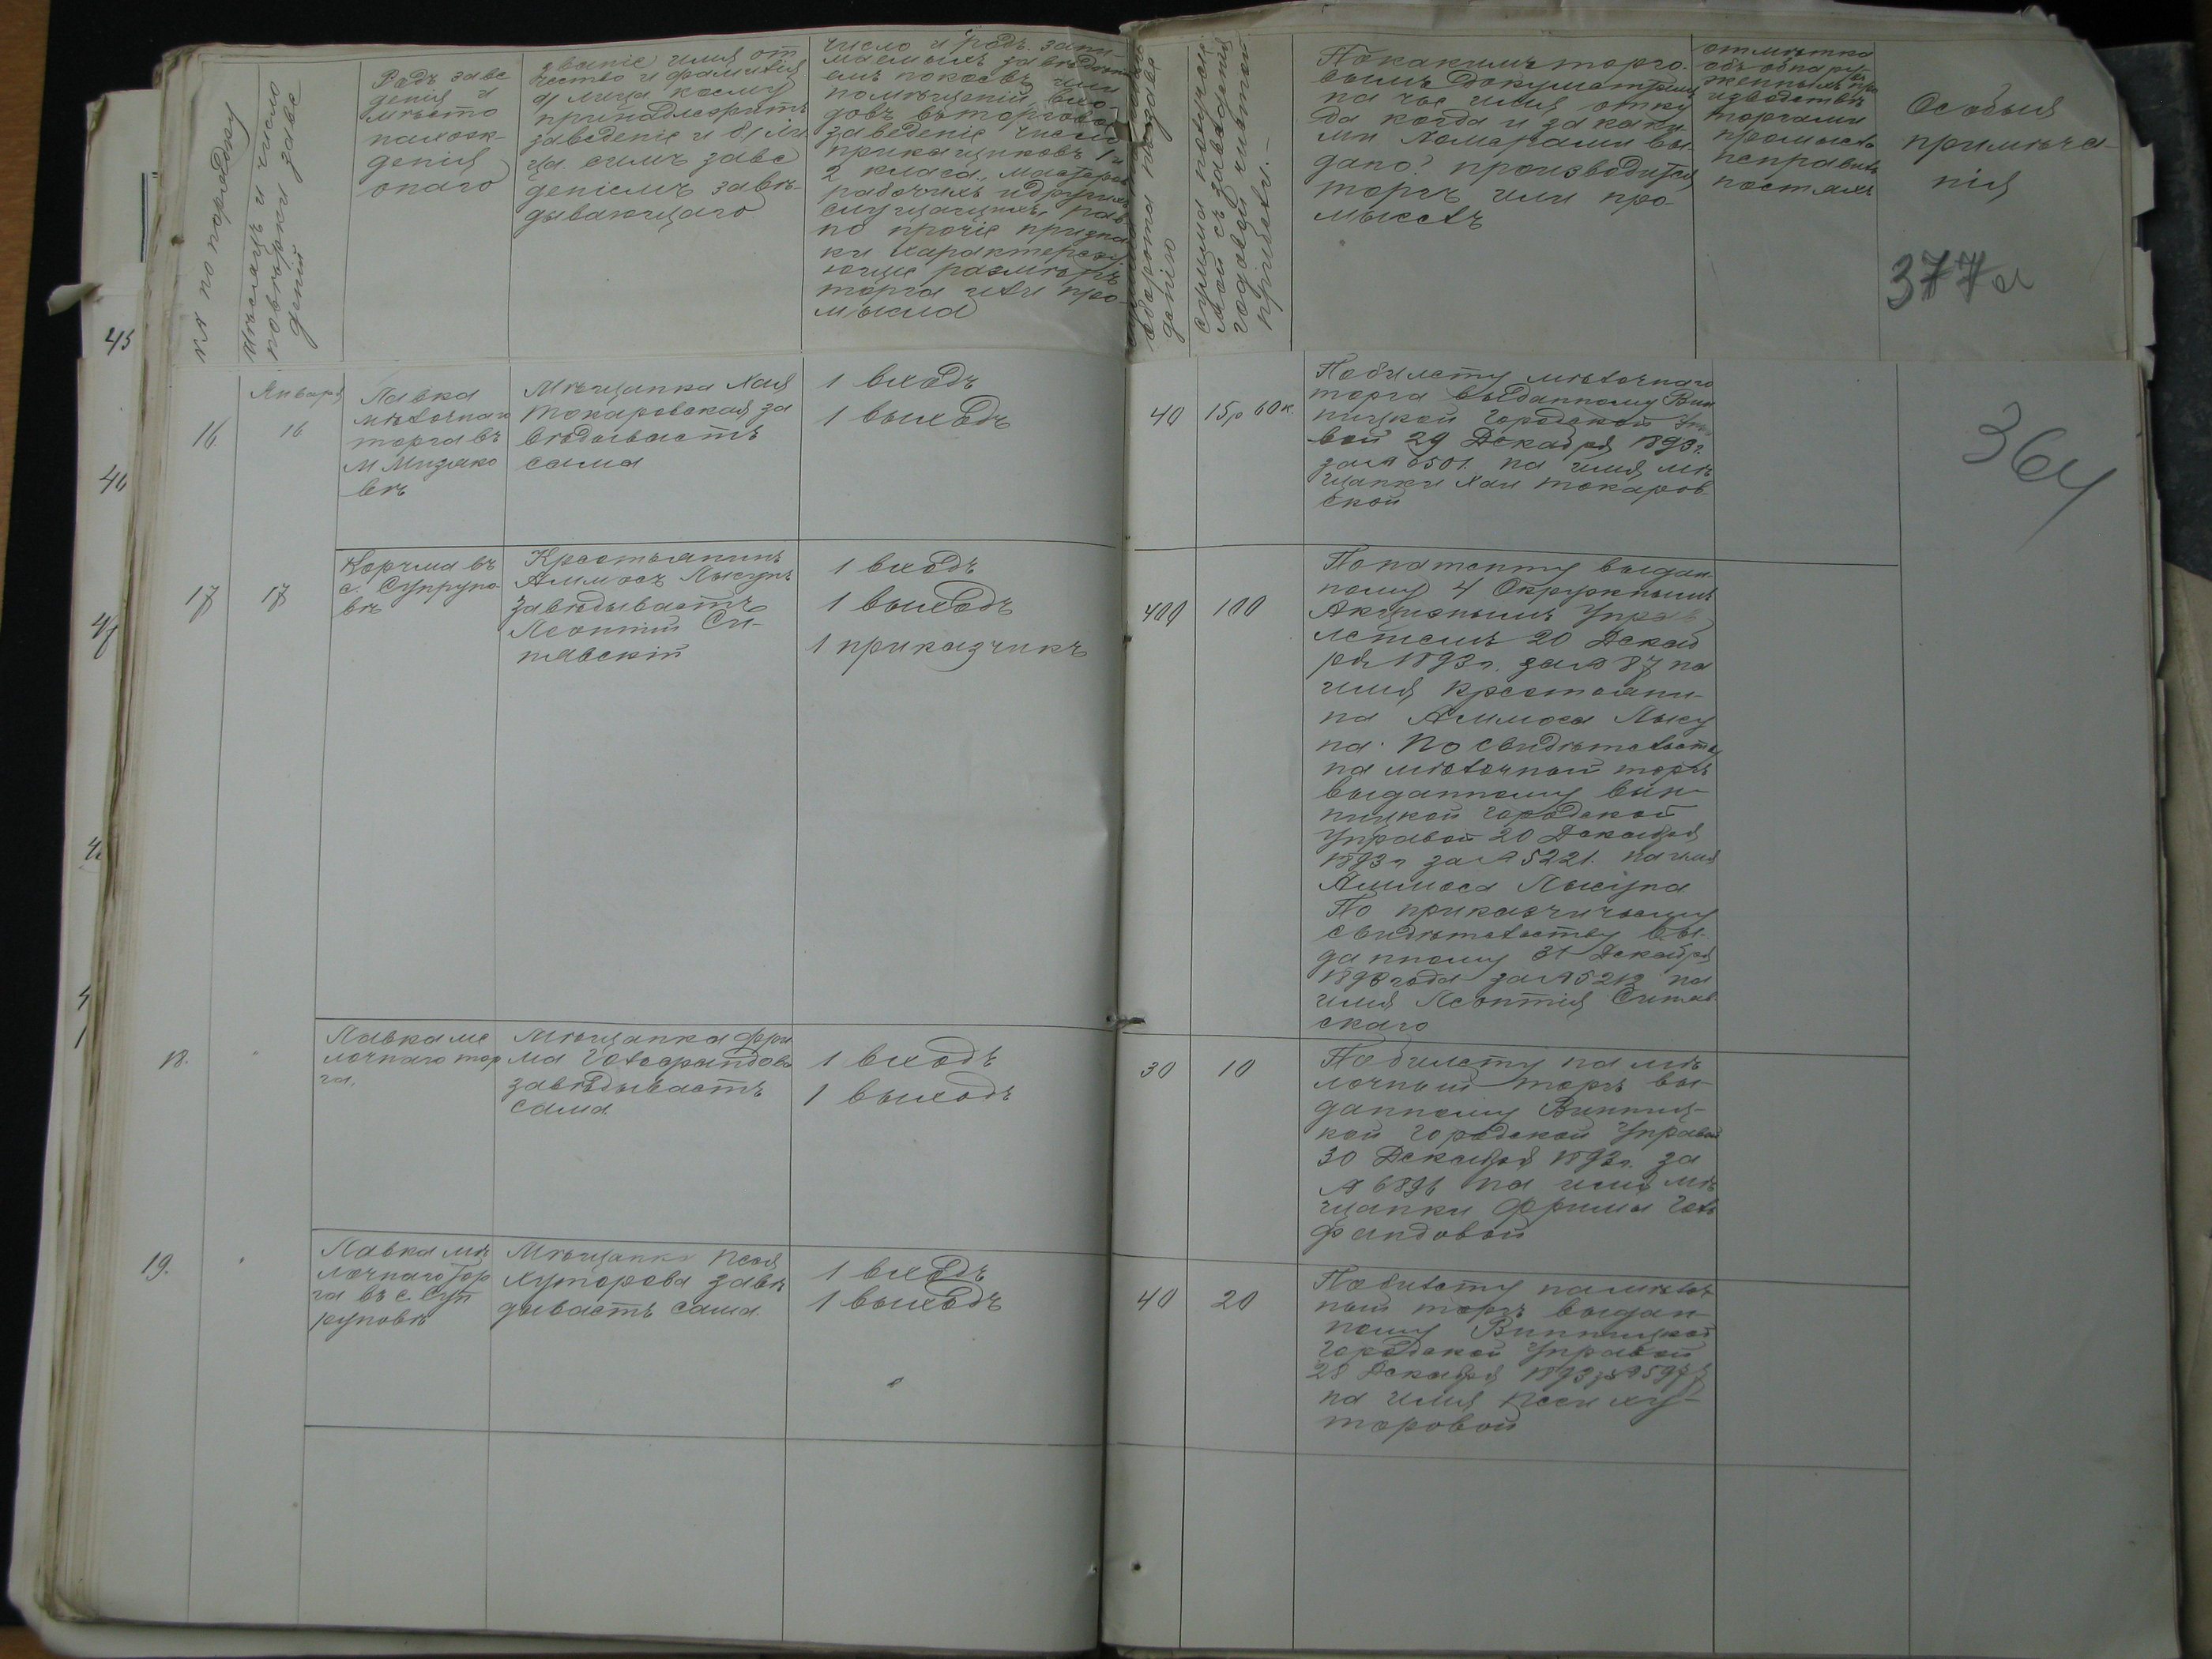 №№ по порядку
Мѣсяцъ и число
повѣрки заве
деній
Родъ заве
денія и
мѣсто
нахож-
денія
онаго
званіе имя от
чество и фамилія
а/ лица коему
принадлежитъ
заведеніе и б/ ли
ца симъ заве
деніемъ завѣ-
дывающаго
число и родъ зани
маемыхъ заведені
емъ покоевъ или
помѣщеній, вхо-
довъ въ торговое
заведеніе число
прикащиковъ 1 и
2 класа, мастеровъ
рабочихъ и другихъ
служащихъ, рав
но прочіе призна
ки характеризу
ющіе размѣръ
торга или про-
мысла
оборота по заве
денію
сумма получае
мой съ заведенія
годовой чистой
прибыли. -
По какимъ торго-
вымъ документамъ
на чье имя отку
да когда и за каки
ми номерами вы
дано? производится
торгъ или про-
мыселъ
отмѣтка
объ обнару
женныхъ при
изводствѣ
торгами
промысл
неправиль
ностяхъ
Особыя
примѣча-
нія
377а
364
45
16
Января
16
Лавка
мѣлочнаго
торга въ
м Мизяко
вѣ
Мѣщанка Хая
Токаровская за
вѣдываетъ
сама
1 входъ
1 выходъ
40
15р 60к.
По билету мѣлочнаго
торга выданному Вин
ницкой Городской Упра
вой 29 Декабря 1893г.
за № 6501. на имя мѣ
щанки Хаи Токаров-
ской
17
17
Корчма въ
с. Супруно
вѣ
Крестьянинъ
Аммосъ Лысунъ
завѣдываетъ
Леонтій Си-
тавскій
1 входъ
1 выходъ
1 приказчикъ
400
100
По патенту выдан-
ному 4 Окружнымъ
Акцизнымъ Управ
леніемъ 20 Декаб
ря 1893г. за № 87 на
имя крестьяни-
на Аммоса Лысу
на. По свидѣтельству
на мѣлочный торгъ
выданному Вин-
ницкой Городской
Управой 20 Декабря
1893г за № 5221. на имя
Аммоса Лысуна
По приказчичьему
свидѣтельству вы-
данному 31 Декабря
1893 года за № 5212 на
имя Леонтія Ситав
скаго
18.
Лавка ме
лочнаго тор
га.
Мѣщанка Фри
ма Гольфандова
завѣдываетъ
сама
1 входъ
1 выходъ
30
10
По билету на мѣ
лочный торгъ вы-
данному Винниц-
кой Городской Управой
30 Декабря 1893г. за
№ 6896 на имя мѣ
щанки Фримы Голь
фандовой
19.
Лавка мѣ
лочнаго тор
га въ с. Суп
руновѣ
Мѣщанка Песя
Хуторова завѣ
дываетъ сама
1 входъ
1 выходъ
40
20
По билету на мѣлоч
ный торгъ выдан-
ному Винницкой
Городской Управой
28 Декабря 1893 за № 5977
на имя Песи Ху-
торовой